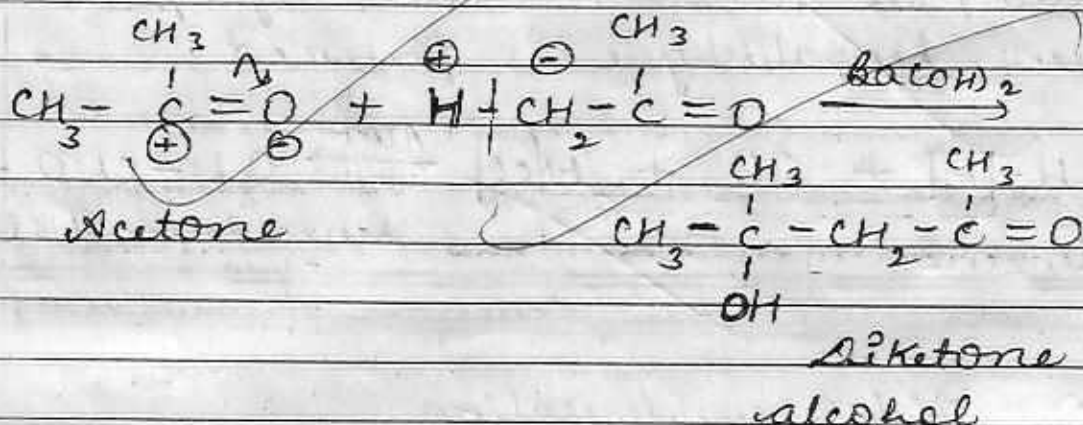 CH3 CH3
CH3 - C = O + H + CH2 - C = O Ba(OH)2 →
⊕ ⊖ ⊕ ⊖
Acetone
CH3 CH3
CH3 - C - CH2 - C = O
OH
Diketone
alcohol